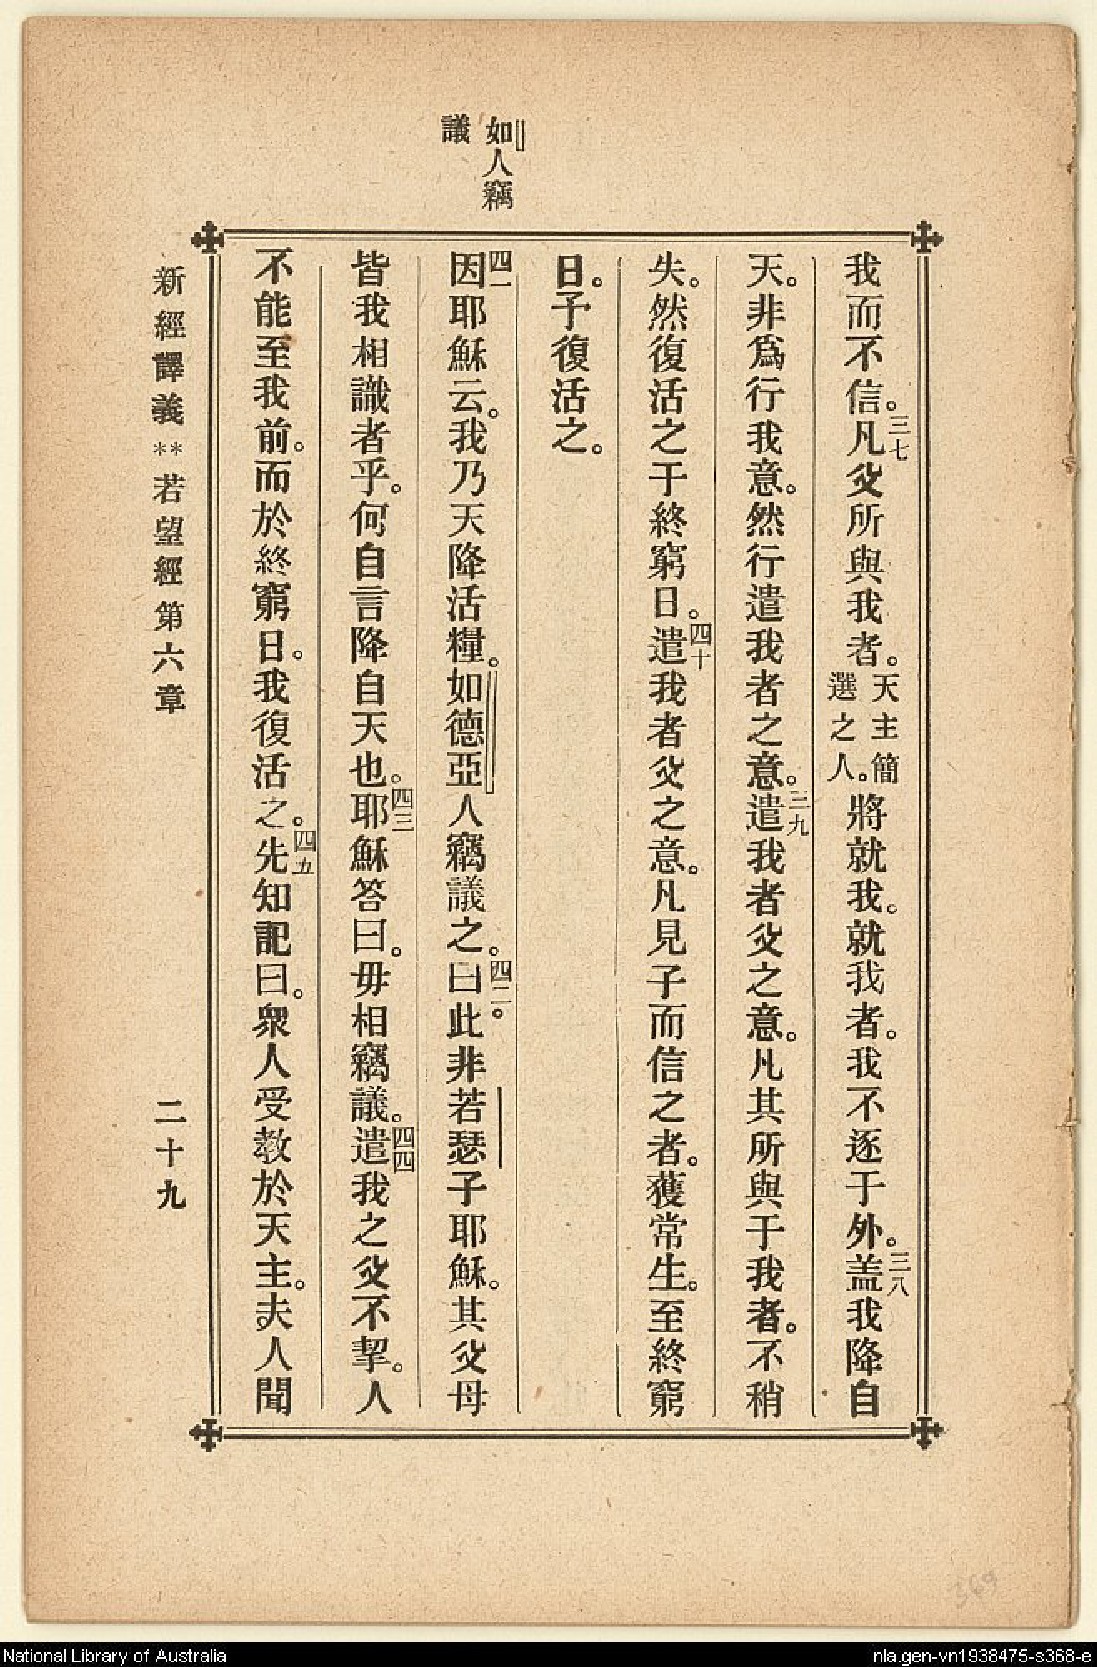 如人竊
議
我而不信。三七凡父所與我者。天主簡選之人。將就我。就我者。我不逐于外。三八盖我降自
天。非爲行我意。然行遣我者之意。三九遣我者父之意。凡其所與于我者。不稍
失。然復活之于終窮日。四十遣我者父之意。凡見子而信之者。獲常生。至終窮
日。予復活之。
四一因耶穌云。我乃天降活糧。如德亞人竊議之。四二曰。此非若瑟子耶穌。其父母
皆我相識者乎。何自言降自天也。四三耶穌答曰。毋相竊議。四四遣我之父不挈。人
不能至我前。而於終窮日。我復活之。四五先知記曰。衆人受教於天主。夫人聞
新經譯義**若望經第六章 二十九
369
National Library of Australia
nla.gen-vn1938475-s368-e